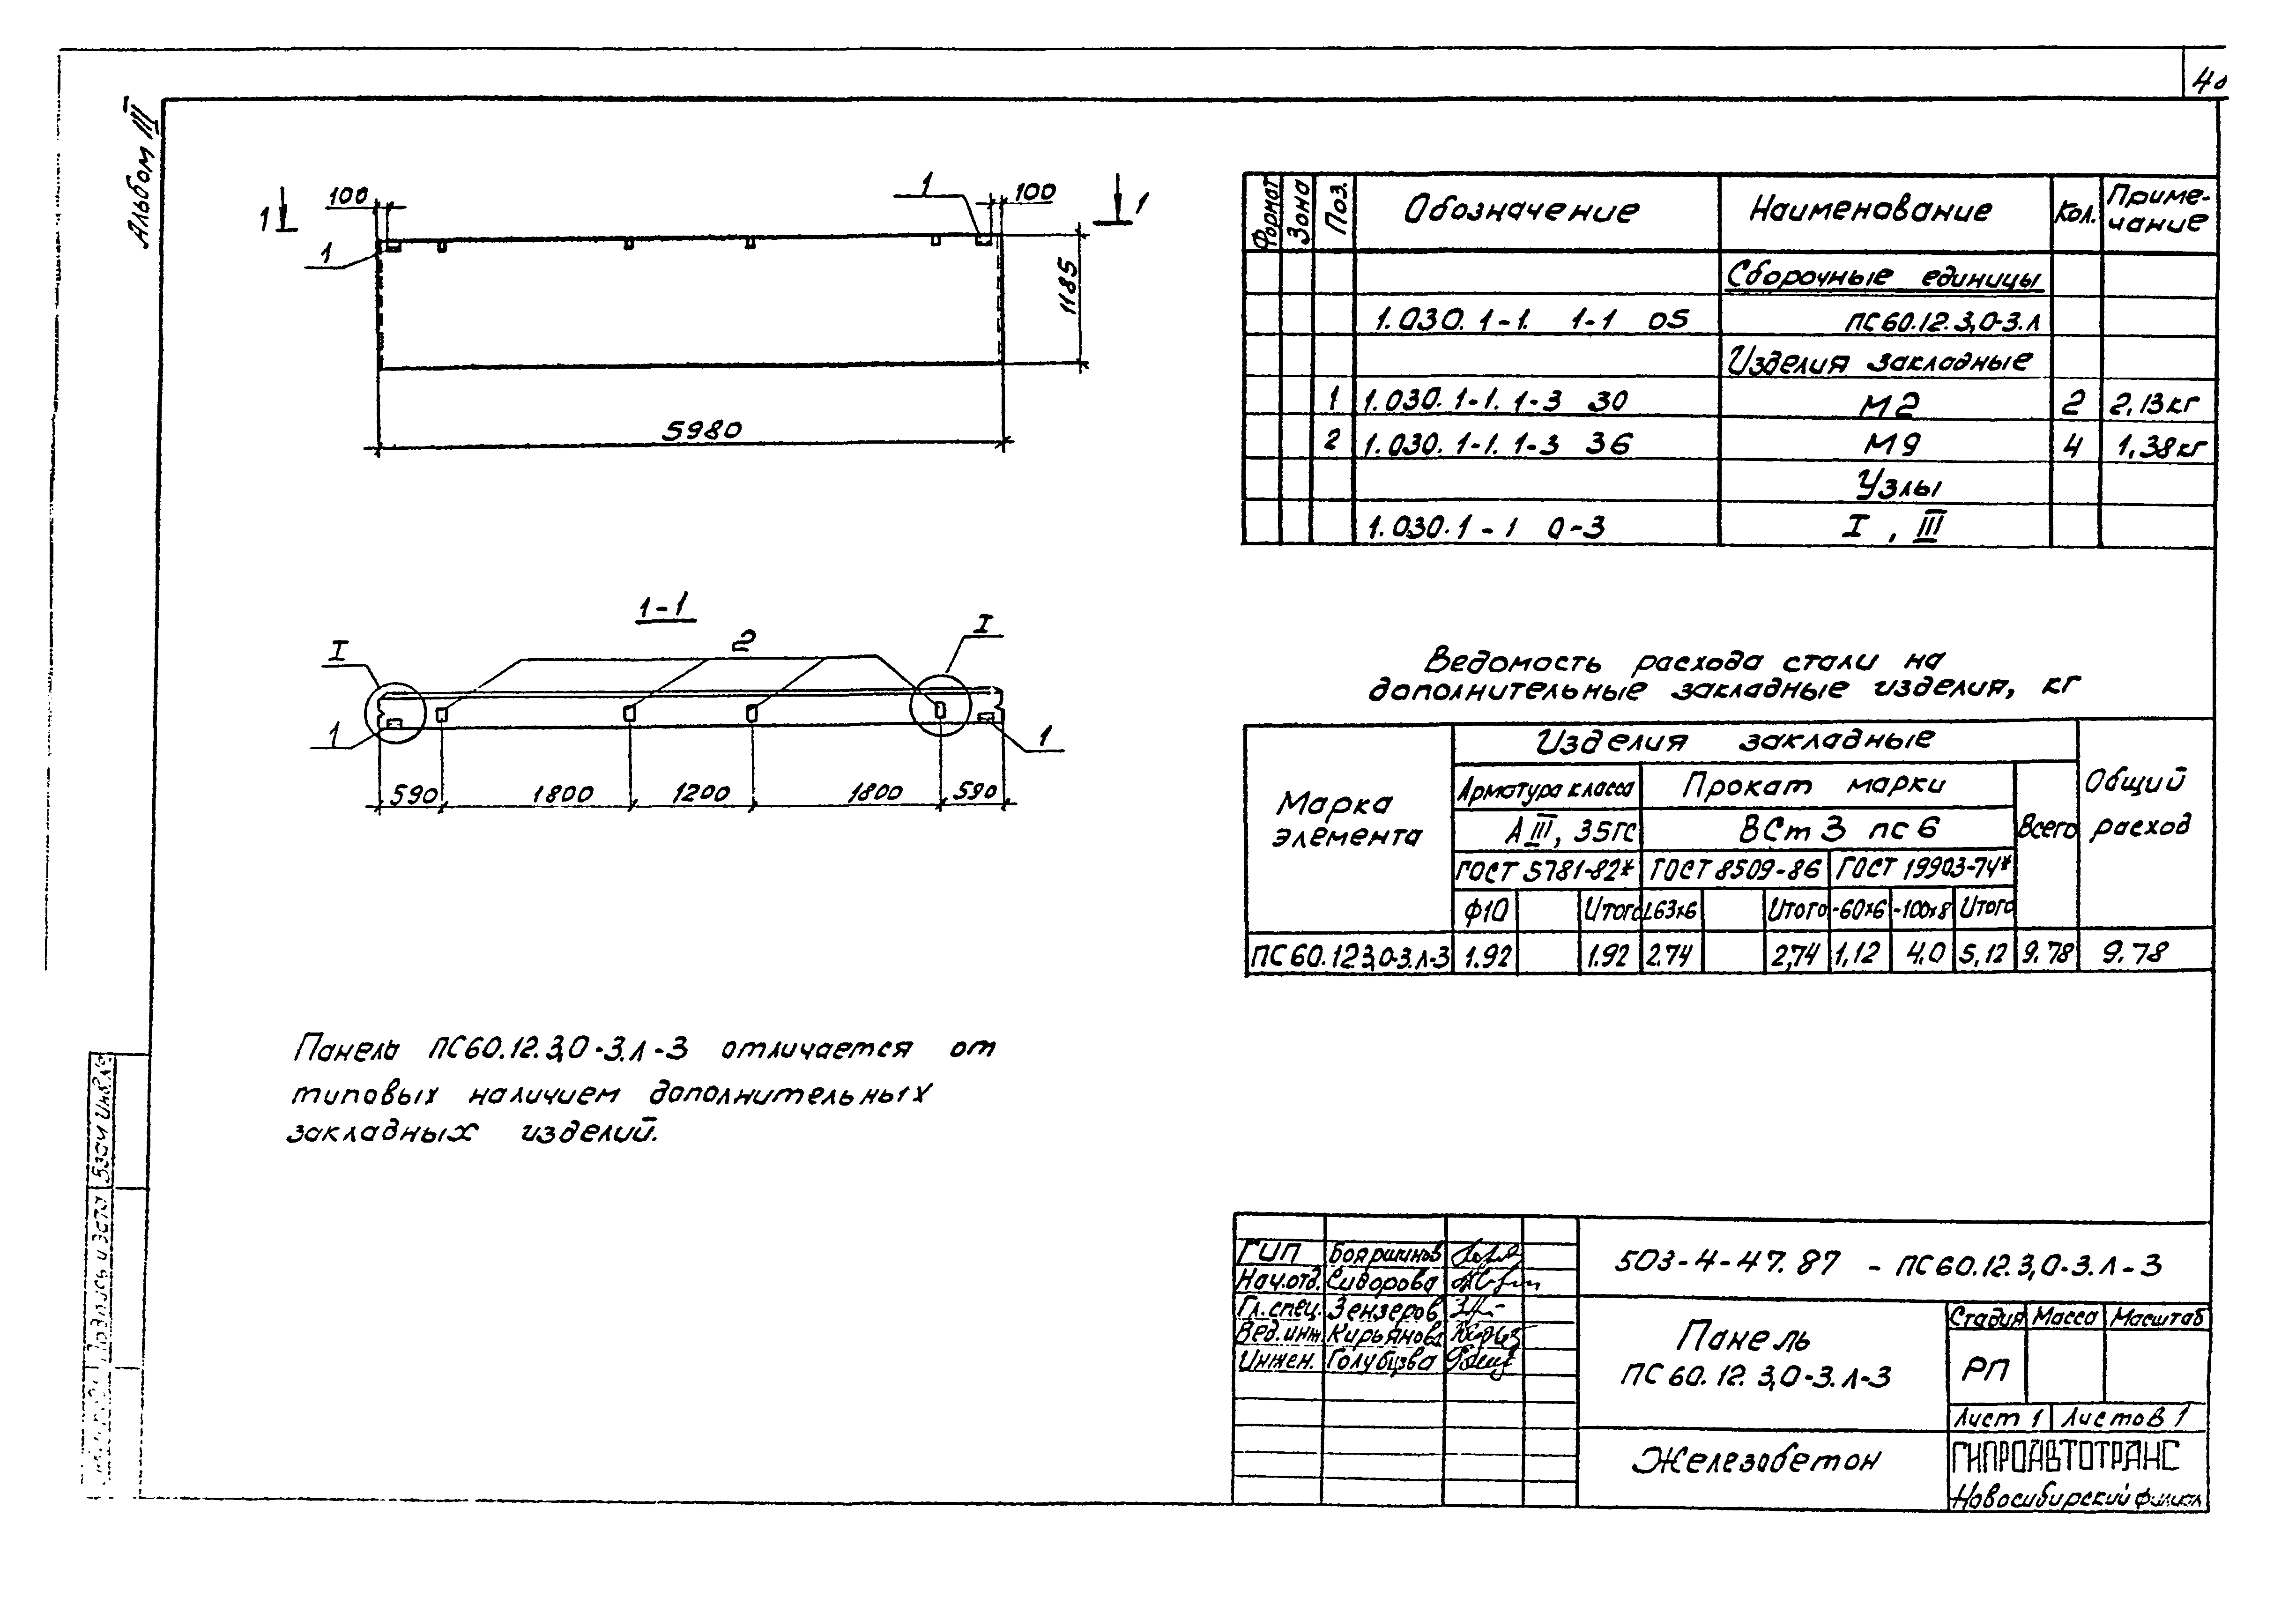 Альбом III
100
1
100
1
1
1
1185
5980
1-1
I
2
I
1
1
590
1800
1200
1800
590
Панель ПС60.12.3,0-3.л-3 отличается от
типовых наличием дополнительных
закладных изделий.
Формат Зона Поз. Обозначение Наименование Кол. Приме-
чание
Сборочные единицы
1.030.1-1. 1-1 05 ПС60.12.3,0-3.л
Изделия закладные
1 1.030.1-1. 1-3 30 М2 2 2,13кг
2 1.030.1-1. 1-3 36 М9 4 1,38кг
Узлы
1.030.1-1 0-3 I, III
Ведомость расхода стали на
дополнительные закладные изделия, кг
Марка
элемента
Изделия закладные
Общий
расход
Арматура класса Прокат марки
АIII, 35ГС ВСт3 пс6 Всего
ГОСТ 5781-82* ГОСТ 8509-86 ГОСТ 19903-74*
Ф10 Итого L63х6 Итого -60х6 -100х8 Итого
ПС60.12 3,0-3.л-3 1.92 1.92 2.74 2,74 1,12 4.0 5,12 9.78 9.78
503-4-47.87 - ПС60.12.3,0-3.л-3
ГИП Бояршинов
Нач.отд. Сидорова
Гл.спец. Зензеров
Вед.инж. Кирьянова
Инжен. Голубцова
Панель
ПС60.12.3,0-3.л-3
Стадия Масса Масштаб
РП
Лист 1 Листов 1
Железобетон
ГИПРОАВТОТРАНС
Новосибирский филиал
Взам Инв.№
Подпись и дата